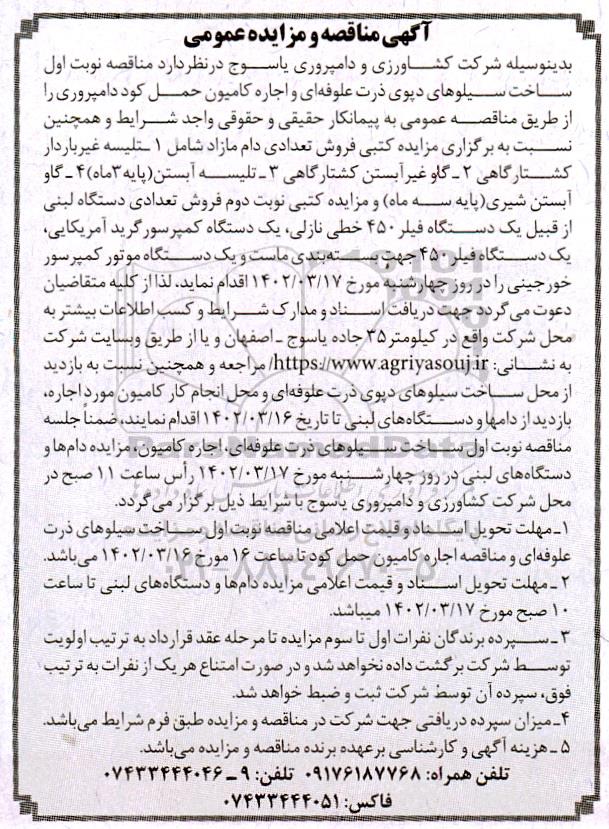 آگهی مناقصه و مزایده عمومی
بدینوسیله شرکت کشاورزی و دامپروری یاسوج درنظر دارد مناقصه نوبت اول
ساخت سیلوهای دپوی ذرت علوفه‌ای و اجاره کامیون حمل کود دامپروری را
از طریق مناقصه عمومی به پیمانکار حقیقی و حقوقی واجد شرایط و همچنین
نسبت به برگزاری مزایده کتبی فروش تعدادی دام مازاد شامل ۱ـ تلیسه غیرباردار
کشتارگاهی ۲ـ گاو غیرآبستن کشتارگاهی ۳ـ تلیسه آبستن(پایه۳ماه) ۴ـ گاو
آبستن شیری(پایه سه ماه) و مزایده کتبی نوبت دوم فروش تعدادی دستگاه لبنی
از قبیل یک دستگاه فیلر ۴۵۰ خطی نازلی، یک دستگاه کمپرسور گرید آمریکایی،
یک دستگاه فیلر ۴۵۰ جهت بسته‌بندی ماست و یک دستگاه موتور کمپرسور
خورجینی را در روز چهارشنبه مورخ ۱۴۰۲/۰۳/۱۷ اقدام نماید، لذا از کلیه متقاضیان
دعوت می‌گردد جهت دریافت اسناد و مدارک شرایط و کسب اطلاعات بیشتر به
محل شرکت واقع در کیلومتر ۳۵ جاده یاسوج ـ اصفهان و یا از طریق وبسایت شرکت
به نشانی: https://www.agriyasouj.ir/ مراجعه و همچنین نسبت به بازدید
از محل ساخت سیلوهای دپوی ذرت علوفه‌ای و محل انجام کار کامیون مورد اجاره،
بازدید از دامها و دستگاه‌های لبنی تا تاریخ ۱۴۰۲/۰۳/۱۶ اقدام نمایند، ضمناً جلسه
مناقصه نوبت اول ساخت سیلوهای ذرت علوفه‌ای، اجاره کامیون، مزایده دام‌ها و
دستگاه‌های لبنی در روز چهارشنبه مورخ ۱۴۰۲/۰۳/۱۷ رأس ساعت ۱۱ صبح در
محل شرکت کشاورزی و دامپروری یاسوج با شرایط ذیل برگزار می‌گردد.
۱ـ مهلت تحویل اسناد و قیمت اعلامی مناقصه نوبت اول ساخت سیلوهای ذرت
علوفه‌ای و مناقصه اجاره کامیون حمل کود تا ساعت ۱۶ مورخ ۱۴۰۲/۰۳/۱۶ می‌باشد.
۲ـ مهلت تحویل اسناد و قیمت اعلامی مزایده دام‌ها و دستگاه‌های لبنی تا ساعت
۱۰ صبح مورخ ۱۴۰۲/۰۳/۱۷ میباشد.
۳ـ سپرده برندگان نفرات اول تا سوم مزایده تا مرحله عقد قرارداد به ترتیب اولویت
توسط شرکت برگشت داده نخواهد شد و در صورت امتناع هر یک از نفرات به ترتیب
فوق، سپرده آن توسط شرکت ثبت و ضبط خواهد شد.
۴ـ میزان سپرده دریافتی جهت شرکت در مناقصه و مزایده طبق فرم شرایط می‌باشد.
۵ـ هزینه آگهی و کارشناسی برعهده برنده مناقصه و مزایده می‌باشد.
تلفن همراه: ۰۹۱۷۶۱۸۷۷۶۸ تلفن: ۹ـ۰۷۴۳۳۴۴۴۰۴۶
فاکس: ۰۷۴۳۳۴۴۴۰۵۱